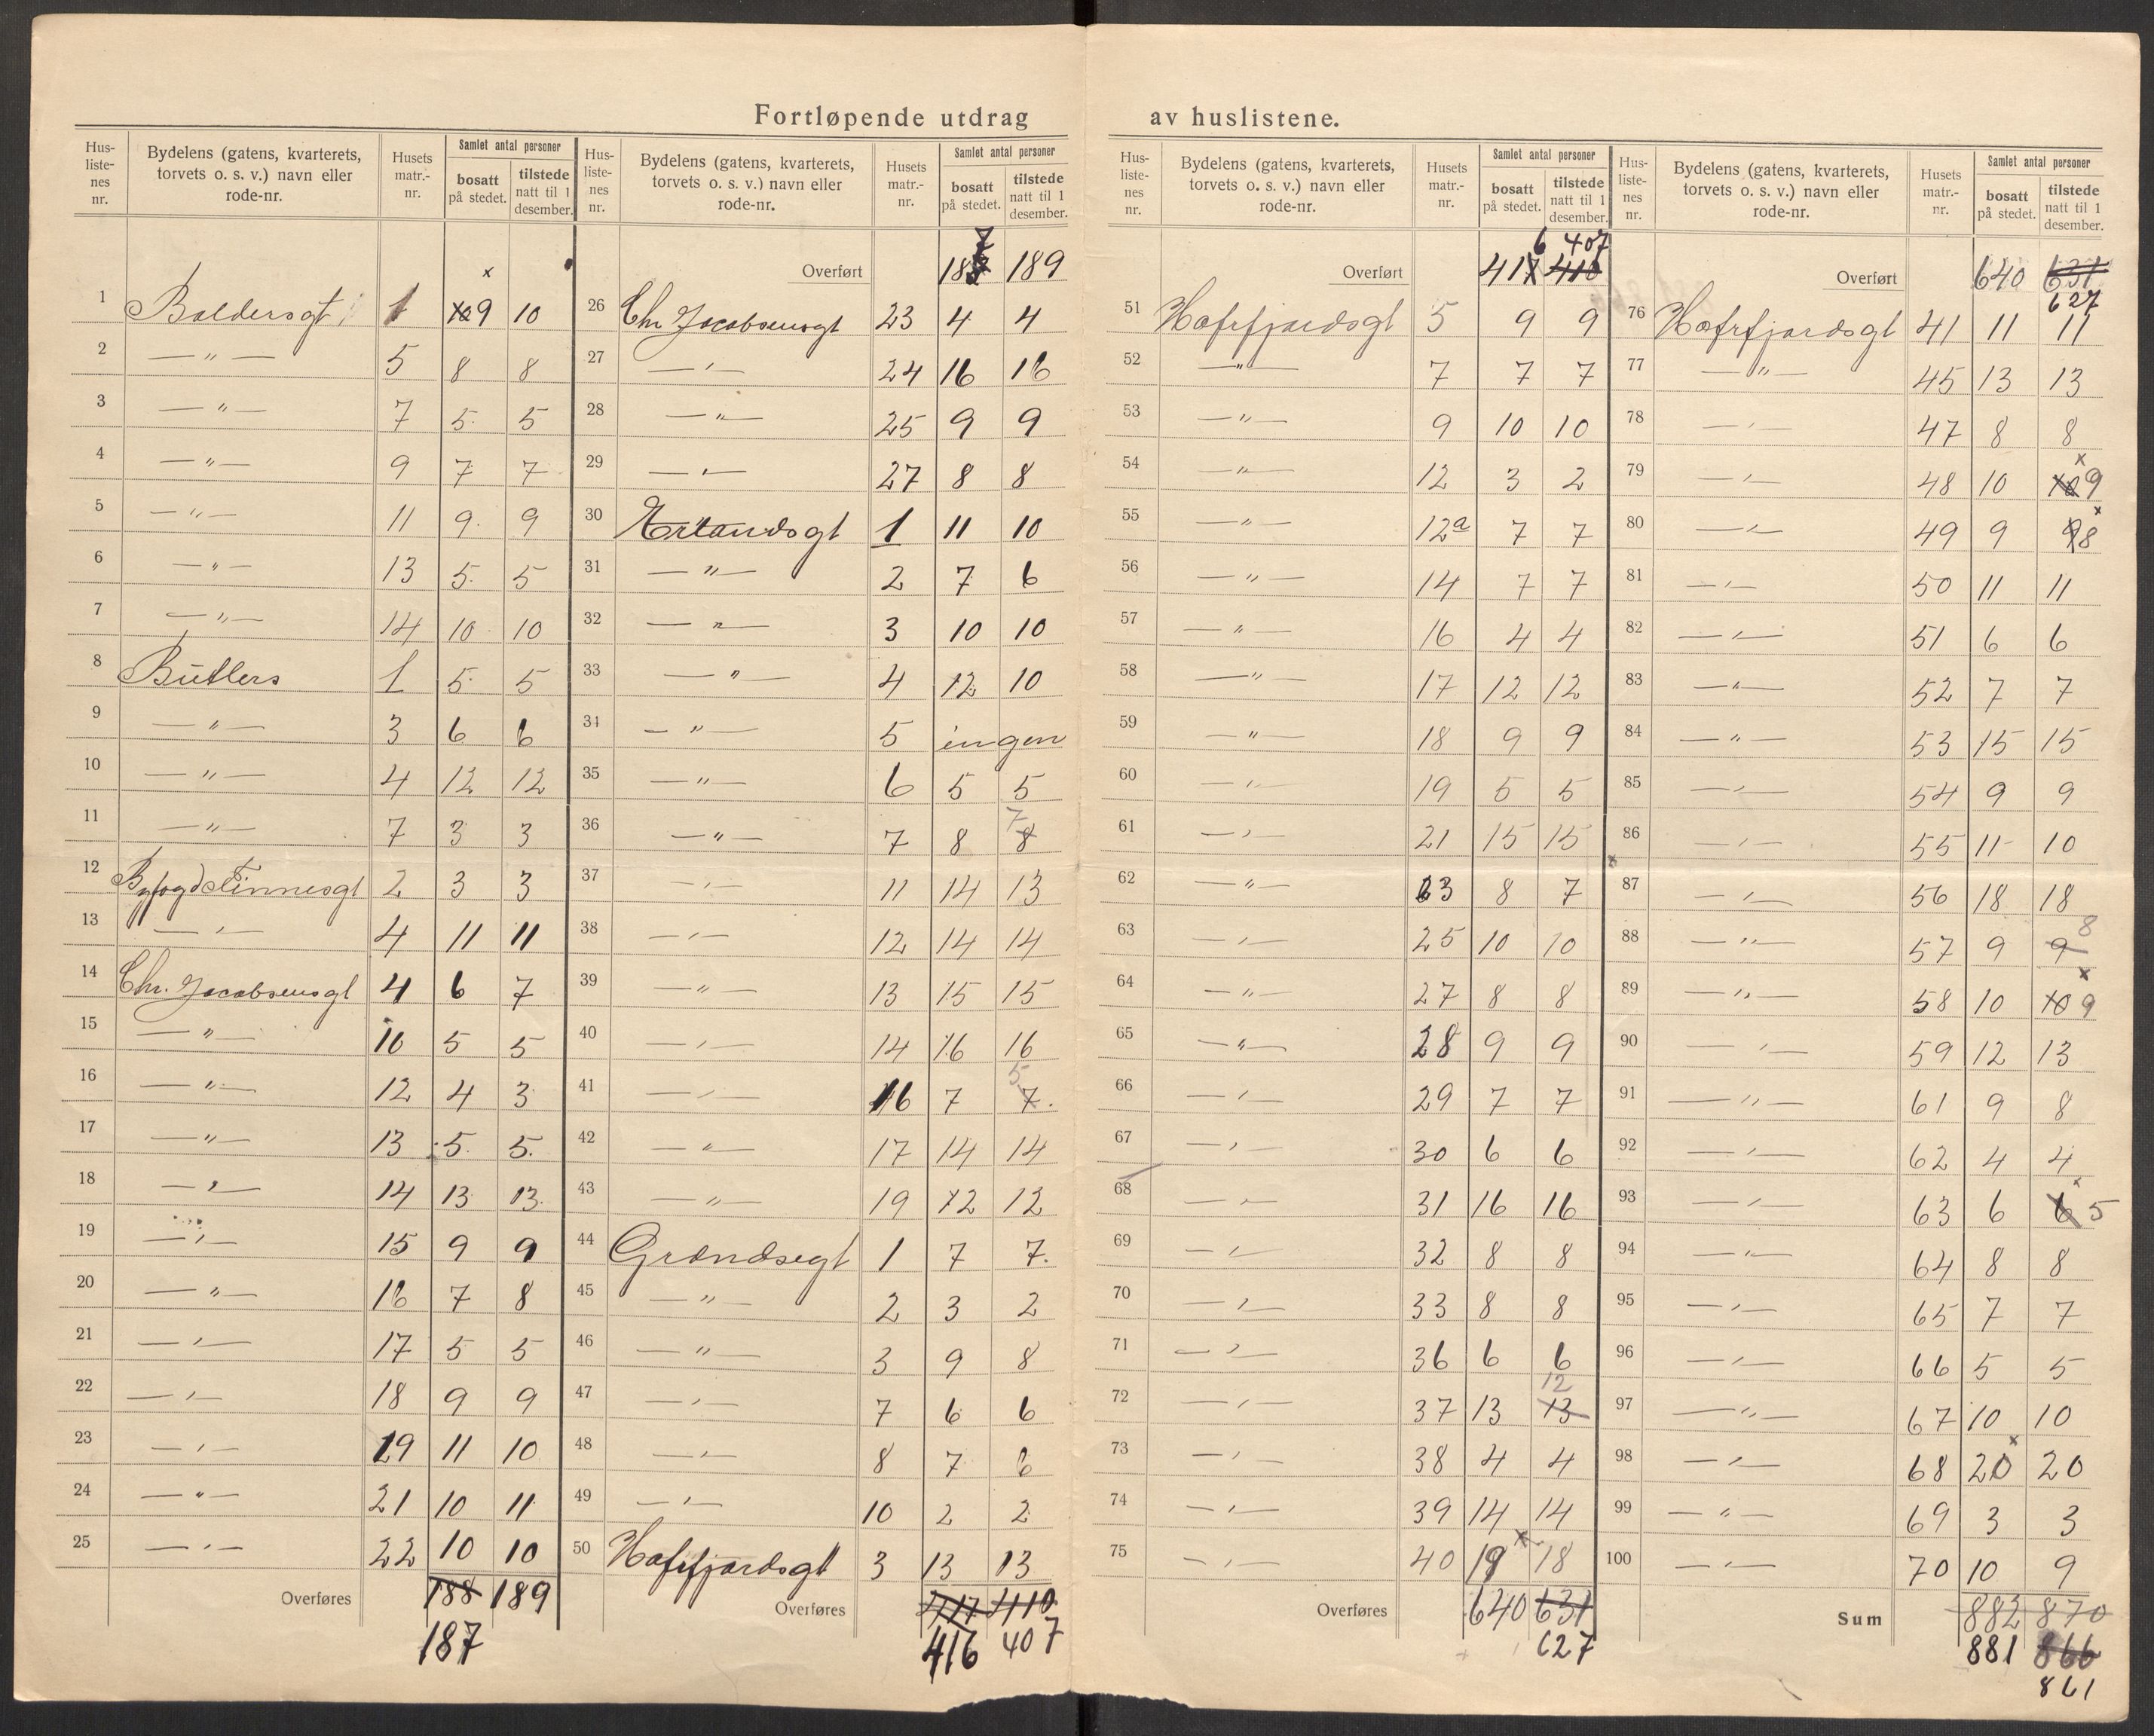 Fortløpende utdrag av huslistene.
Hus-listenes nr. | Bydelens (gatens, kvarterets, torvets o. s. v.) navn eller rode-nr. | Husets matr.-nr. | Samlet antal personer bosatt på stedet. | tilstede natt til 1 desember.
1 Baldersgt 1 10 9 10
2 —"— 5 8 8
3 —"— 7 5 5
4 —"— 9 7 7
5 —"— 11 9 9
6 —"— 13 5 5
7 —"— 14 10 10
8 Butlers 1 5 5
9 —"— 3 6 6
10 —"— 4 12 12
11 —"— 7 3 3
12 Byfogd Finnesgt 2 3 3
13 —"— 4 11 11
14 Chr. Jacobsensgt 4 6 7
15 —"— 10 5 5
16 —"— 12 4 3
17 —"— 13 5 5
18 —"— 14 13 13
19 —"— 15 9 9
20 —"— 16 7 8
21 —"— 17 5 5
22 —"— 18 9 9
23 —"— 19 11 10
24 —"— 21 10 11
25 —"— 22 10 10
Overføres 188 189
187
Hus-listenes nr. | Bydelens (gatens, kvarterets, torvets o. s. v.) navn eller rode-nr. | Husets matr.-nr. | Samlet antal personer bosatt på stedet. | tilstede natt til 1 desember.
Overført 187 189
26 Chr Jacobsensgt 23 4 4
27 —"— 24 16 16
28 —"— 25 9 9
29 —"— 27 8 8
30 Erlandsgt 1 11 10
31 —"— 2 7 6
32 —"— 3 10 10
33 —"— 4 12 10
34 —"— 5 ingen
35 —"— 6 5 5
36 —"— 7 8 8 7
37 —"— 11 14 13
38 —"— 12 14 14
39 —"— 13 15 15
40 —"— 14 16 16
41 —"— 16 7 7 5
42 —"— 17 14 14
43 —"— 19 12 12
44 Grændsegt 1 7 7
45 —"— 2 3 2
46 —"— 3 9 8
47 —"— 7 6 6
48 —"— 8 7 6
49 —"— 10 2 2
50 Hafrfjordsgt 3 13 13
Overføres 417 410
416 407
Hus-listenes nr. | Bydelens (gatens, kvarterets, torvets o. s. v.) navn eller rode-nr. | Husets matr.-nr. | Samlet antal personer bosatt på stedet. | tilstede natt til 1 desember.
6 407
Overført 417 410
51 Hafrfjordsgt 5 9 9
52 —"— 7 7 7
53 —"— 9 10 10
54 —"— 12 3 2
55 —"— 12a 7 7
56 —"— 14 7 7
57 —"— 16 4 4
58 —"— 17 12 12
59 —"— 18 9 9
60 —"— 19 5 5
61 —"— 21 15 15
62 —"— 23 8 7
63 —"— 25 10 10
64 —"— 27 8 8
65 —"— 28 9 9
66 —"— 29 7 7
67 —"— 30 6 6
68 —"— 31 16 16
69 —"— 32 8 8
70 —"— 33 8 8
71 —"— 36 6 6
72 —"— 37 13 13 12
73 —"— 38 4 4
74 —"— 39 14 14
75 —"— 40 19 18
Overføres 640 631
627
Hus-listenes nr. | Bydelens (gatens, kvarterets, torvets o. s. v.) navn eller rode-nr. | Husets matr.-nr. | Samlet antal personer bosatt på stedet. | tilstede natt til 1 desember.
Overført 640 631
627
76 Hafrfjordsgt 41 11 11
77 —"— 45 13 13
78 —"— 47 8 8
79 —"— 48 10 10 9
80 —"— 49 9 9 8
81 —"— 50 11 11
82 —"— 51 6 6
83 —"— 52 7 7
84 —"— 53 15 15
85 —"— 54 9 9
86 —"— 55 11 10
87 —"— 56 18 18
88 —"— 57 9 9 8
89 —"— 58 10 10 9
90 —"— 59 12 13
91 —"— 61 9 8
92 —"— 62 4 4
93 —"— 63 6 6 5
94 —"— 64 8 8
95 —"— 65 7 7
96 —"— 66 5 5
97 —"— 67 10 10
98 —"— 68 20 20
99 —"— 69 3 3
100 —"— 70 10 9
Sum 882 870
881 866
861